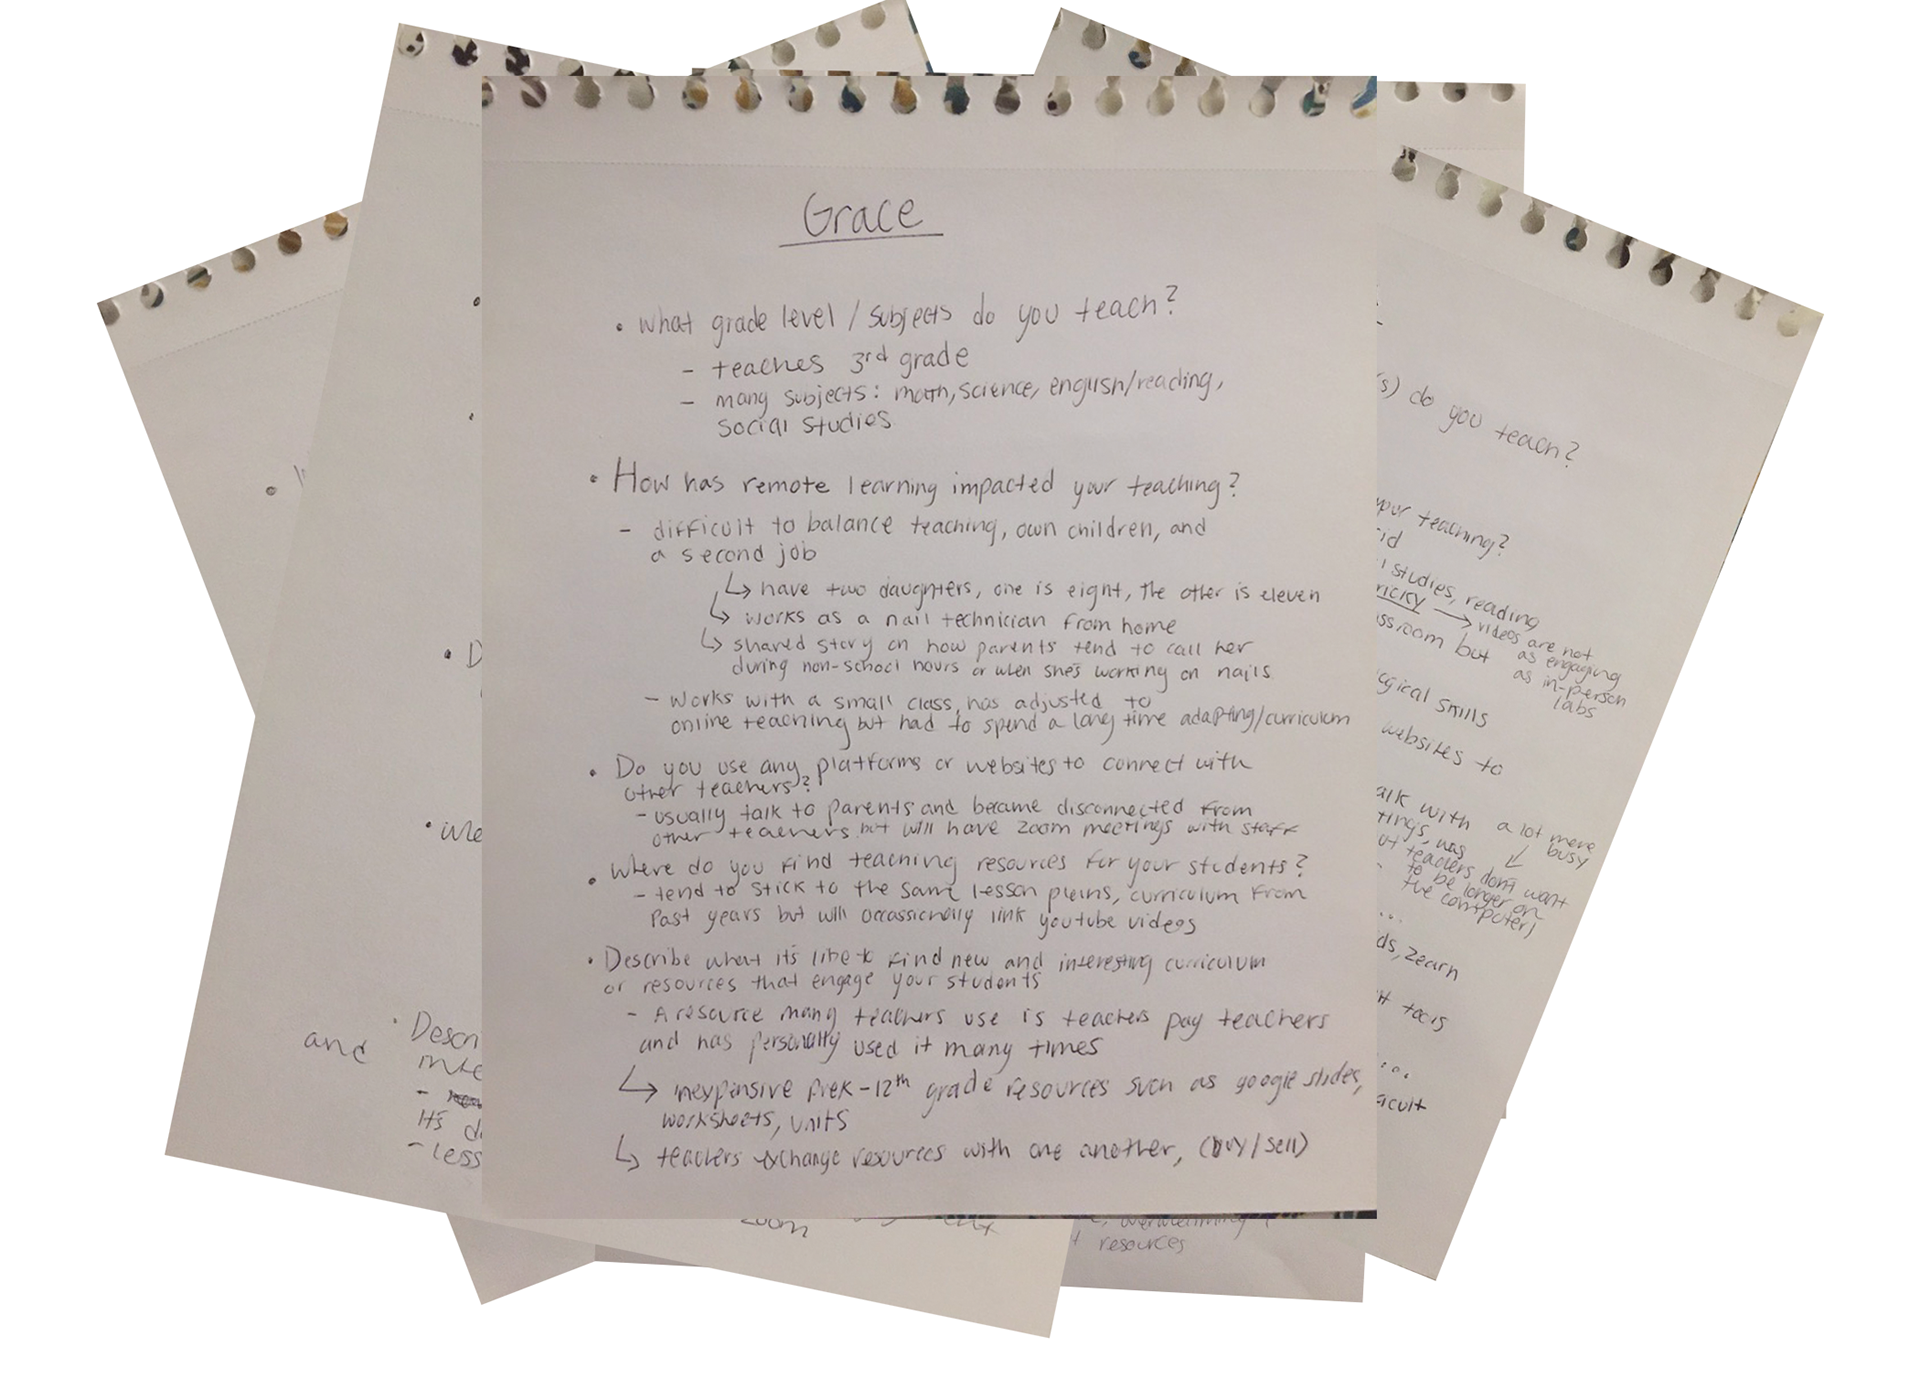 Grace
• What grade level / subjects do you teach?
- teaches 3rd grade
- many subjects: math, science, english/reading,
social studies
• How has remote learning impacted your teaching?
- difficult to balance teaching, own children, and
a second job
↳ have two daughters, one is eight, the other is eleven
↳ works as a nail technician from home
↳ shared story on how parents tend to call her
during non-school hours or when she's working on nails
- works with a small class, has adjusted to
online teaching but had to spend a long time adapting/curriculum
• Do you use any platforms or websites to connect with
other teachers?
- usually talk to parents and became disconnected from
other teachers but will have zoom meetings with staff
• Where do you find teaching resources for your students?
- tend to stick to the same lesson plans, curriculum from
past years but will occassionally link youtube videos
• Describe what it's like to find new and interesting curriculum
or resources that engage your students
- A resource many teachers use is teachers pay teachers
and has personally used it many times
↳ inexpensive prek-12th grade resources such as google slides,
worksheets, units
↳ teachers exchange resources with one another, (buy/sell)
and
• Descri
inte
It's d
- less
zoom
overwhelming
resources
(s) do you teach?
your teaching?
studies, reading
→ videos are not
as engaging
as in-person
labs
ssroom but
ogical skills
websites to
alk with a lot more
busy
tings, has
ut teachers don't want
to be longer on
the computer)
...
ds, zearn
tools
...
icult